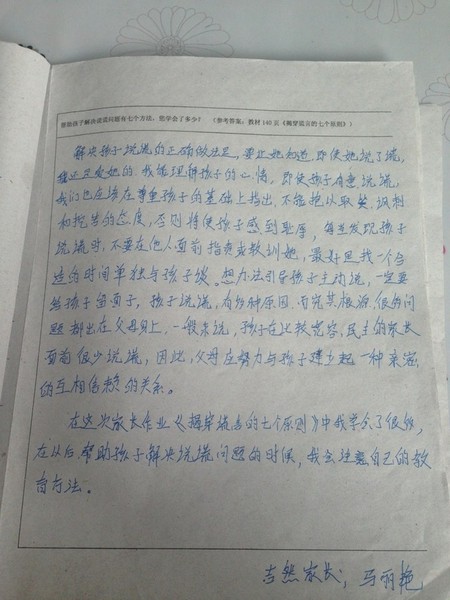 帮助孩子解决说谎问题有七个方法，您学会了多少？ （参考答案：教材148页《揭穿谎言的七个原则》）
解决孩子说谎的正确做法是，要让她知道，即使她说了谎，
我还是爱她的。我能理解孩子的心情，即使孩子有意说谎，
我们也应该在尊重孩子的基础上指出，不能抱以取笑、讽刺
和挖苦的态度，否则将使孩子感到耻辱，每当发现孩子
说谎时，不要在他人面前指责或教训她，最好是找一个合
适的时间单独与孩子谈。想办法引导孩子主动说，一定要
给孩子留面子，孩子说谎，有多种原因，而究其根源，很多问
题都出在父母身上，一般来说，孩子在比较宽容、民主的家长
面前很少说谎，因此，父母应努力与孩子建立起一种亲密
的互相信赖的关系。
在这次家长作业《揭穿谎言的七个原则》中我学会了很多，
在以后帮助孩子解决说谎问题的时候，我会注意自己的教
育方法。
吉然家长：马丽艳